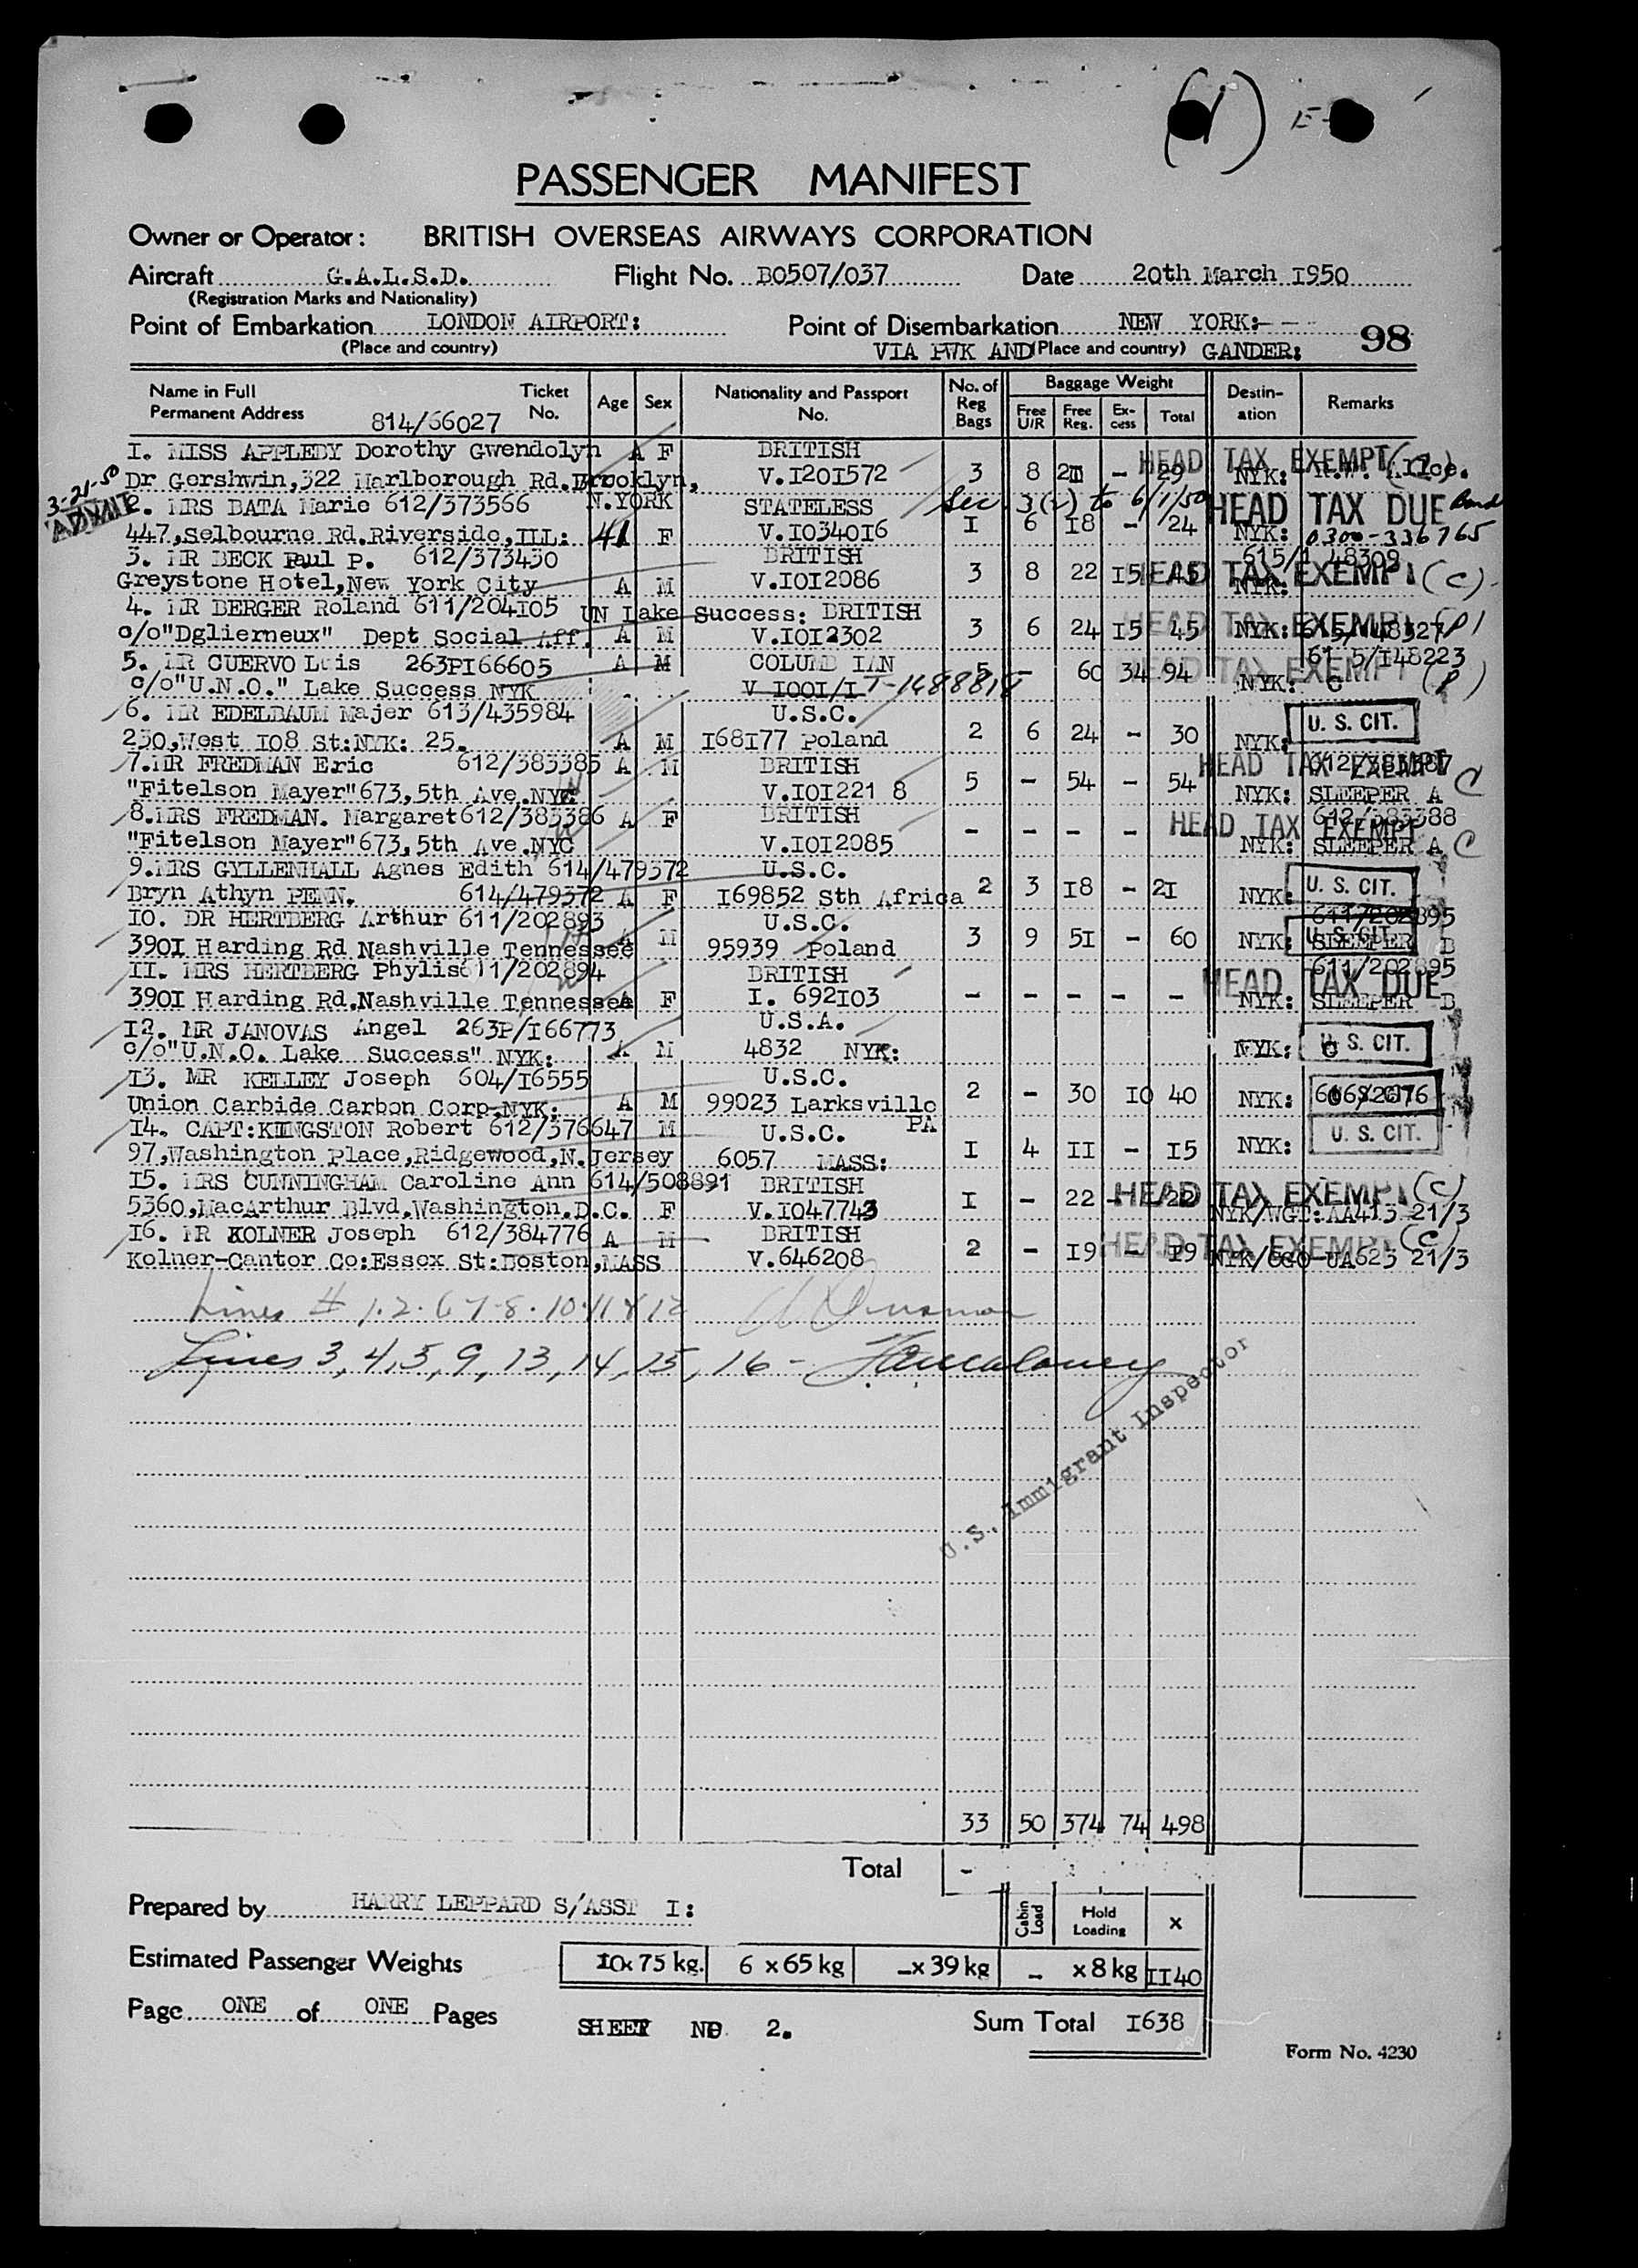 (1) E-
PASSENGER MANIFEST
Owner or Operator: BRITISH OVERSEAS AIRWAYS CORPORATION
Aircraft G.A.L.S.D. Flight No. BO507/037 Date 20th March I950
(Registration Marks and Nationality)
Point of Embarkation LONDON AIRPORT: Point of Disembarkation NEW YORK:- -
(Place and country) VIA PWK AND (Place and country) GANDER: 98
Name in Full Ticket Age Sex Nationality and Passport No. of Baggage Weight Destin- Remarks
Permanent Address No. No. Reg Bags Free U/R Free Reg. Ex-cess Total ation
814/66027
I. MISS APPLEBY Dorothy Gwendolyn A F BRITISH HEAD TAX EXEMPT
Dr Gershwin,322 Marlborough Rd.Brooklyn, V.I20I572 3 8 - 29 NYK:
3-21-50 ADMIT
2. MRS BATA Marie 612/373566 N.YORK STATELESS Sec. 3(2) to 6/1/50 HEAD TAX DUE Bond
447,Selbourne Rd.Riverside,ILL: 41 F V.I0340I6 I 6 I8 - 24 NYK: 0300-336765
3. MR BECK Paul P. 612/373430 BRITISH 615/ 48309
Greystone Hotel,New York City A M V.I0I2086 3 8 22 I5 45 NYK: HEAD TAX EXEMPT (C)
4. MR BERGER Roland 611/204I05 UN Lake Success: BRITISH
c/o"Dglierneux" Dept Social Aff. A M V.I0I2302 3 6 24 I5 45 NYK: HEAD TAX EXEMPT (P)
5. MR CUERVO Luis 263PI66605 A M COLUMBIAN 5 - 60 34 94 61 5/I48223
c/o"U.N.O." Lake Success NYK V I00I/I NYK: C HEAD TAX EXEMPT (P)
6. MR EDELBAUM Majer 613/435984 U.S.C. U. S. CIT.
230,West I08 St:NYK: 25. A M I68I77 Poland 2 6 24 - 30 NYK:
7.MR FREDMAN Eric 612/383385 A M BRITISH HEAD TAX EXEMPT 612/383387
"Fitelson Mayer"673,5th Ave.NYC V.I0I221 8 5 - 54 - 54 NYK: SLEEPER A C
8.MRS FREDMAN. Margaret 612/383386 A F BRITISH HEAD TAX EXEMPT 612/383388
"Fitelson Mayer"673,5th Ave.NYC V.I0I2085 - - - - - NYK: SLEEPER A C
9.MRS GYLLENHALL Agnes Edith 614/479372 U.S.C. U. S. CIT.
Bryn Athyn PENN. 614/479372 A F I69852 Sth Africa 2 3 I8 - 2I NYK:
I0. DR HERTBERG Arthur 611/202893 U.S.C. 611/202895
390I Harding Rd Nashville Tennessee A M 95939 Poland 3 9 5I - 60 NYK: SLEEPER B U. S. CIT.
II. MRS HERTBERG Phylis 611/202894 BRITISH 611/202895
390I Harding Rd.Nashville Tennessee A F I. 692I03 - - - - - NYK: SLEEPER B HEAD TAX DUE
I2. MR JANOVAS Angel 263P/I66773 U.S.A.
c/o"U.N.O. Lake Success" NYK: A M 4832 NYK: NYK: C U. S. CIT.
I3. MR KELLEY Joseph 604/I6555 U.S.C.
Union Carbide Carbon Corp.NYK: A M 99023 Larksville PA 2 - 30 I0 40 NYK:
I4. CAPT:KINGSTON Robert 612/376647 M U.S.C. U. S. CIT.
97,Washington Place,Ridgewood,N.Jersey 6057 MASS: I 4 II - I5 NYK:
I5. MRS CUNNINGHAM Caroline Ann 614/508891 BRITISH HEAD TAX EXEMPT (C)
5360,MacArthur Blvd.Washington.D.C. F V.I047743 I - 22 - 22 NYK/WGT:AA413 21/3
I6. MR KOLNER Joseph 612/384776 A M BRITISH HEAD TAX EXEMPT (C)
Kolner-Cantor Co:Essex St:Boston,MASS V.646208 2 - I9 - I9 NYK/CGO-UA623 21/3
Lines # 1.2.6 7-8.10.11 & 12
Lines 3, 4, 5, 9, 13, 14, 15, 16 -
U.S. Immigrant Inspector
33 50 374 74 498
Total -
Prepared by HARRY LEPPARD S/ASST I: Cabin Load Hold Loading X
Estimated Passenger Weights I0x 75 kg. 6 x 65 kg -x 39 kg - x 8 kg II40
Page ONE of ONE Pages SHEET NO 2. Sum Total I638
Form No. 4230